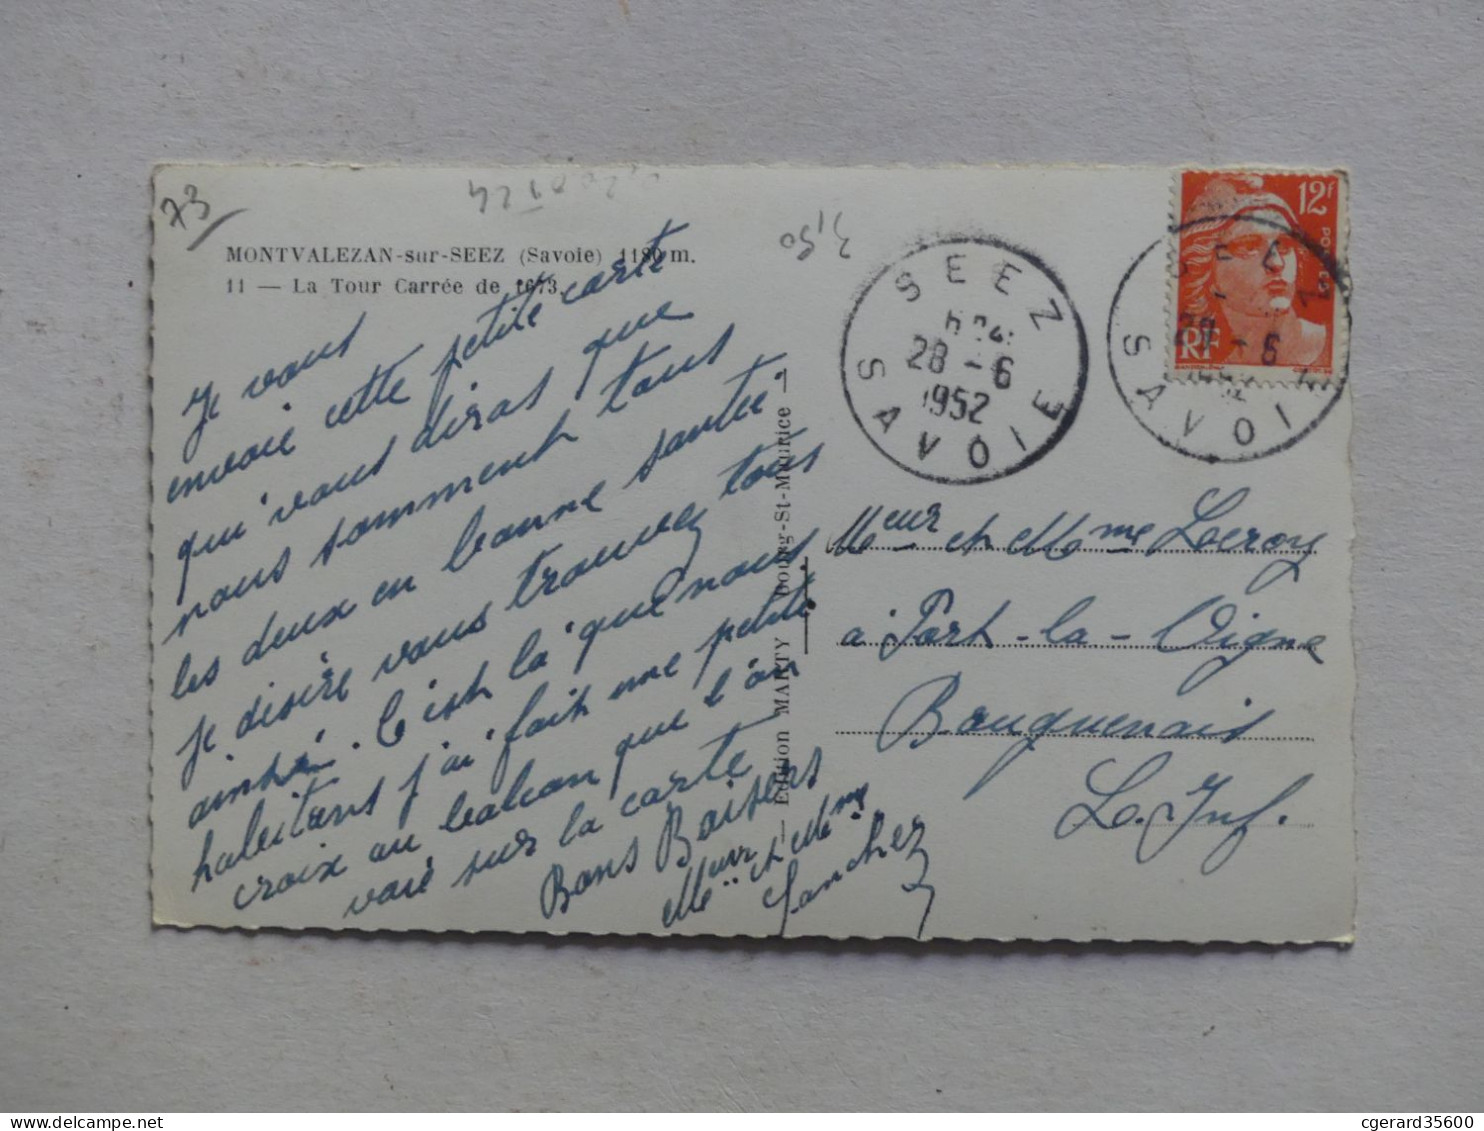 73
3,50
MONTVALEZAN-sur-SEEZ (Savoie) 1180 m.
11 — La Tour Carrée de 1673.
Je vous
envoie cette petite carte
qui vous diras que
nous somment tous
les deux en bonne santée
je désire vous trouvez tous
ainsi. C'est là que nous
habitons j'ai fait une petite
croix au balcon que l'on
voie sur la carte
Bons Baisers
Meur et Mme
Sanchez
— Edition MARTY Bourg-St-Maurice —
SEEZ
28 -6
1952
SAVOIE
12F
POSTES
RF
SEEZ
28 -6
1952
SAVOIE
Meur et Mme Leroy
à Port-la-Vigne
Bouguenais
Le. Inf.
cgerard35600